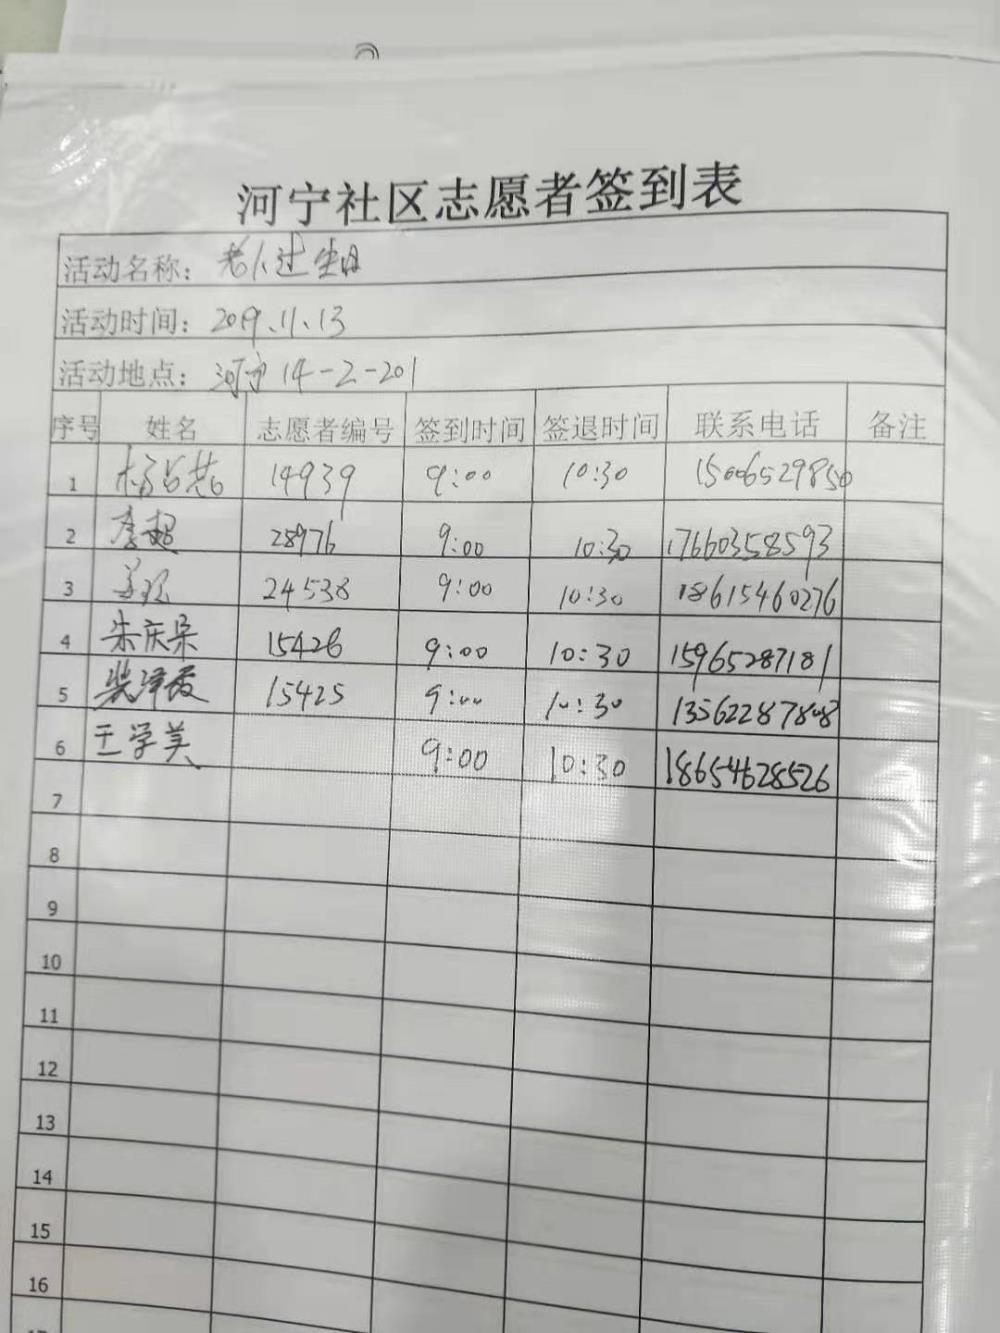 河宁社区志愿者签到表
活动名称：老人过生日
活动时间：2019.11.13
活动地点：河宁14-2-201
序号 姓名 志愿者编号 签到时间 签退时间 联系电话 备注
1 14939 9:00 10:30 15006529850
2 李超 28976 9:00 10:30 17660358593
3 24538 9:00 10:30 18615460276
4 朱庆朵 15426 9:00 10:30 15965287181
5 柴泽霞 15425 9:00 10:30 13562287808
6 王学美 9:00 10:30 18654628526
7
8
9
10
11
12
13
14
15
16